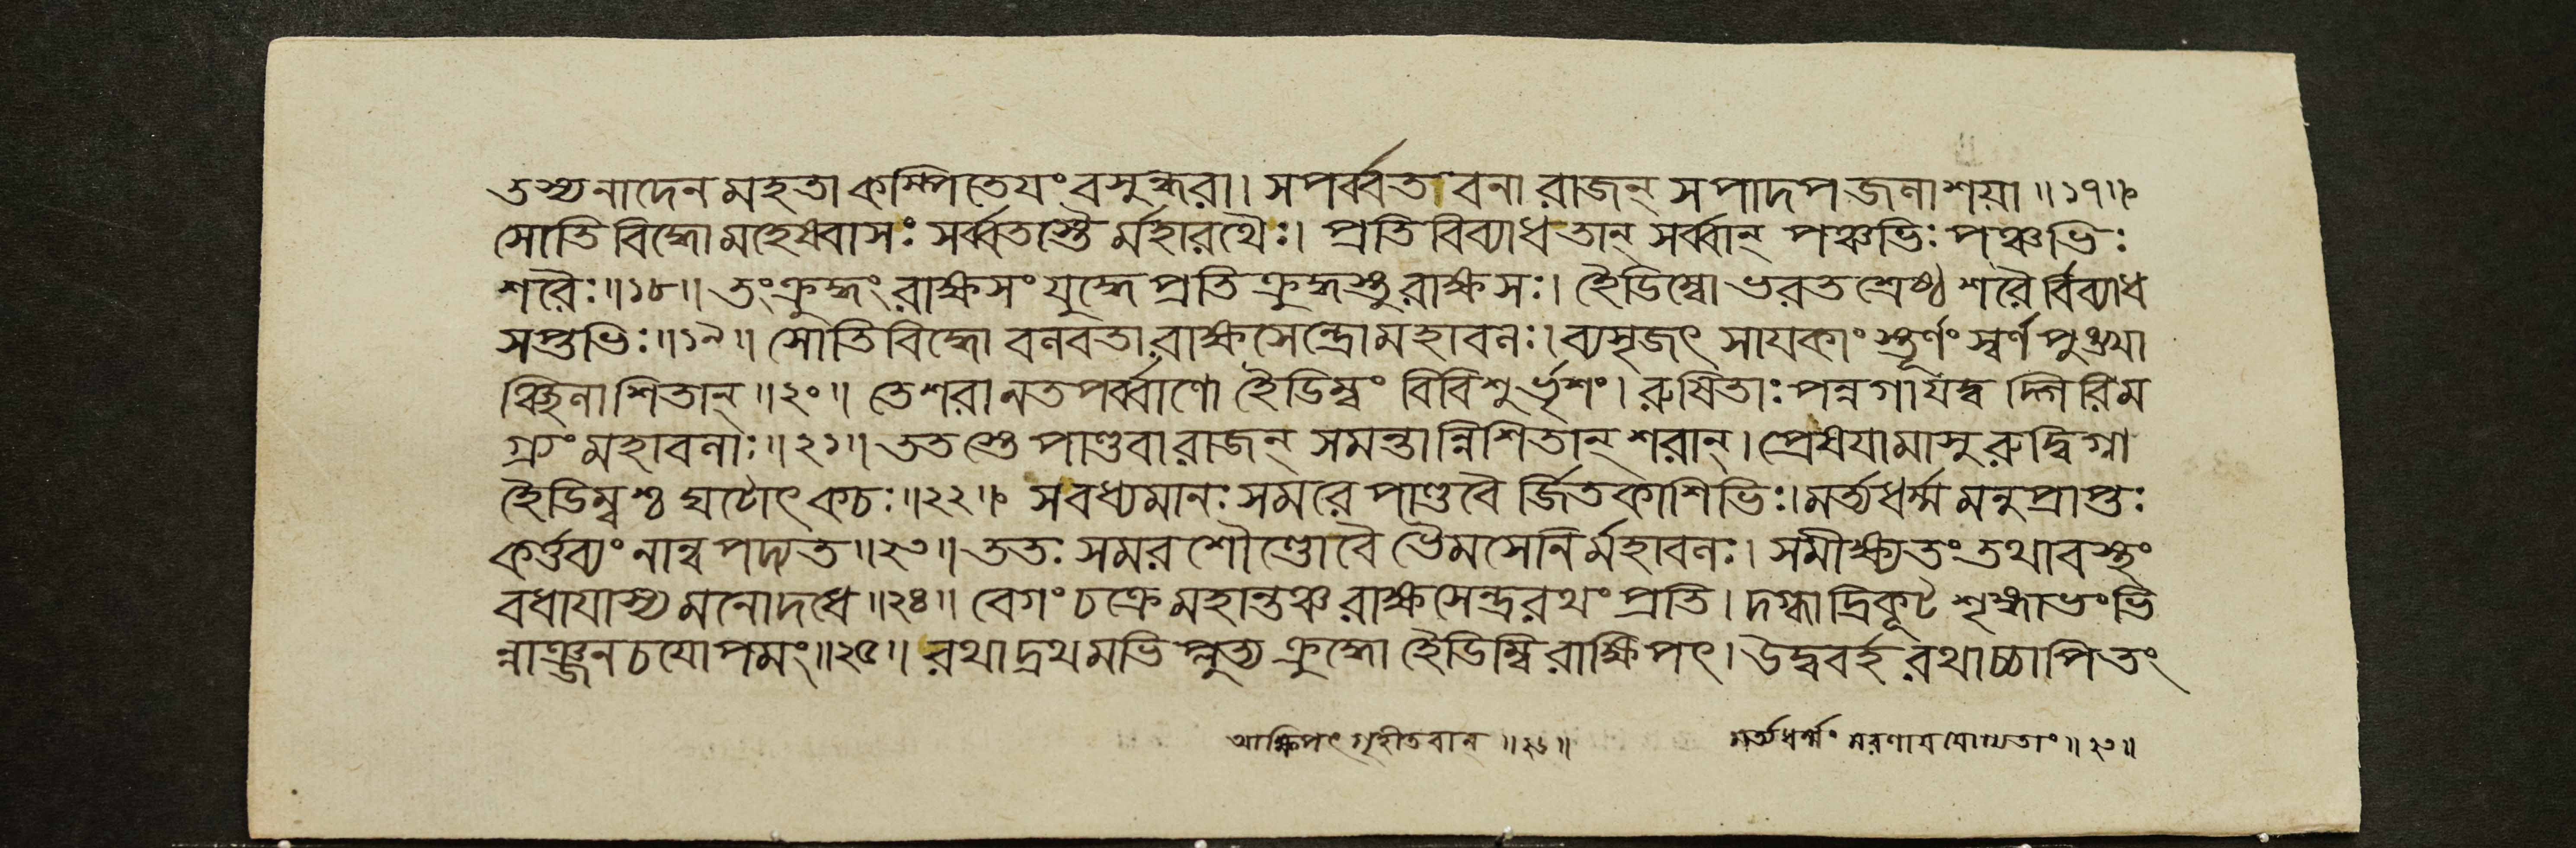 তস্য নাদেন মহতা কম্পিতেয়ং বসুন্ধরা। সপর্ব্বতা বনা রাজন্ সপাদপজলাশয়া॥১৭॥
সোতিবিদ্ধো মহেষ্বাসঃ সর্ব্বতস্তৈর্মহারথৈঃ। প্রতিবিব্যাধ তান্ সর্ব্বান্ পঞ্চভিঃ পঞ্চভিঃ
শরৈঃ॥১৮॥ তং ক্রুদ্ধং রাক্ষসং যুদ্ধে প্রতিক্রুদ্ধস্তু রাক্ষসঃ। হৈডিম্বো ভরতশ্রেষ্ঠ শরৈর্বিব্যাধ
সপ্তভিঃ॥১৯॥ সোতিবিদ্ধো বলবতা রাক্ষসেন্দ্রো মহাবলঃ। ব্যসৃজৎ সায়কাংস্তূর্ণং স্বর্ণপুঙ্খা
ঞ্ছিলাশিতান্॥২০॥ তে শরা নতপর্ব্বাণো হৈডিম্বং বিবিশুর্ভৃশং। রুষিতাঃ পন্নগা যদ্বদ্গিরিম
গ্রং মহাবলাঃ॥২১॥ ততস্তে পাণ্ডবা রাজন্ সমন্তান্নিশিতান্ শরান্। প্রেষয়ামাসুরুদ্বিগ্না
হৈডিম্বশ্চ ঘটোৎকচঃ॥২২॥ স বধ্যমানঃ সমরে পাণ্ডবৈর্জিতকাশিভিঃ। মর্ত্যধর্ম্মমনুপ্রাপ্তঃ
কর্ত্তব্যং নান্বপদ্যত॥২৩॥ ততঃ সমরশৌণ্ডো বৈ ভৈমসেনির্মহাবলঃ। সমীক্ষ্য তং তথাবস্থং
বধায়াস্য মনো দধে॥২৪॥ বেগং চক্রে মহান্তঞ্চ রাক্ষসেন্দ্ররথং প্রতি। দগ্ধাদ্রিকূটশৃঙ্গাভং ভি
ন্নাঞ্জনচয়োপমং॥২৫॥ রথাদ্রথমভিপ্লুত্য ক্রুদ্ধো হৈডিম্বিরাক্ষিপৎ। উদ্ববর্হ রথাচ্চাপি তং
আক্ষিপৎ গৃহীতবান্॥২৬॥ মর্ত্যধর্ম্মং মরণায় যোগ্যতাং॥২৩॥